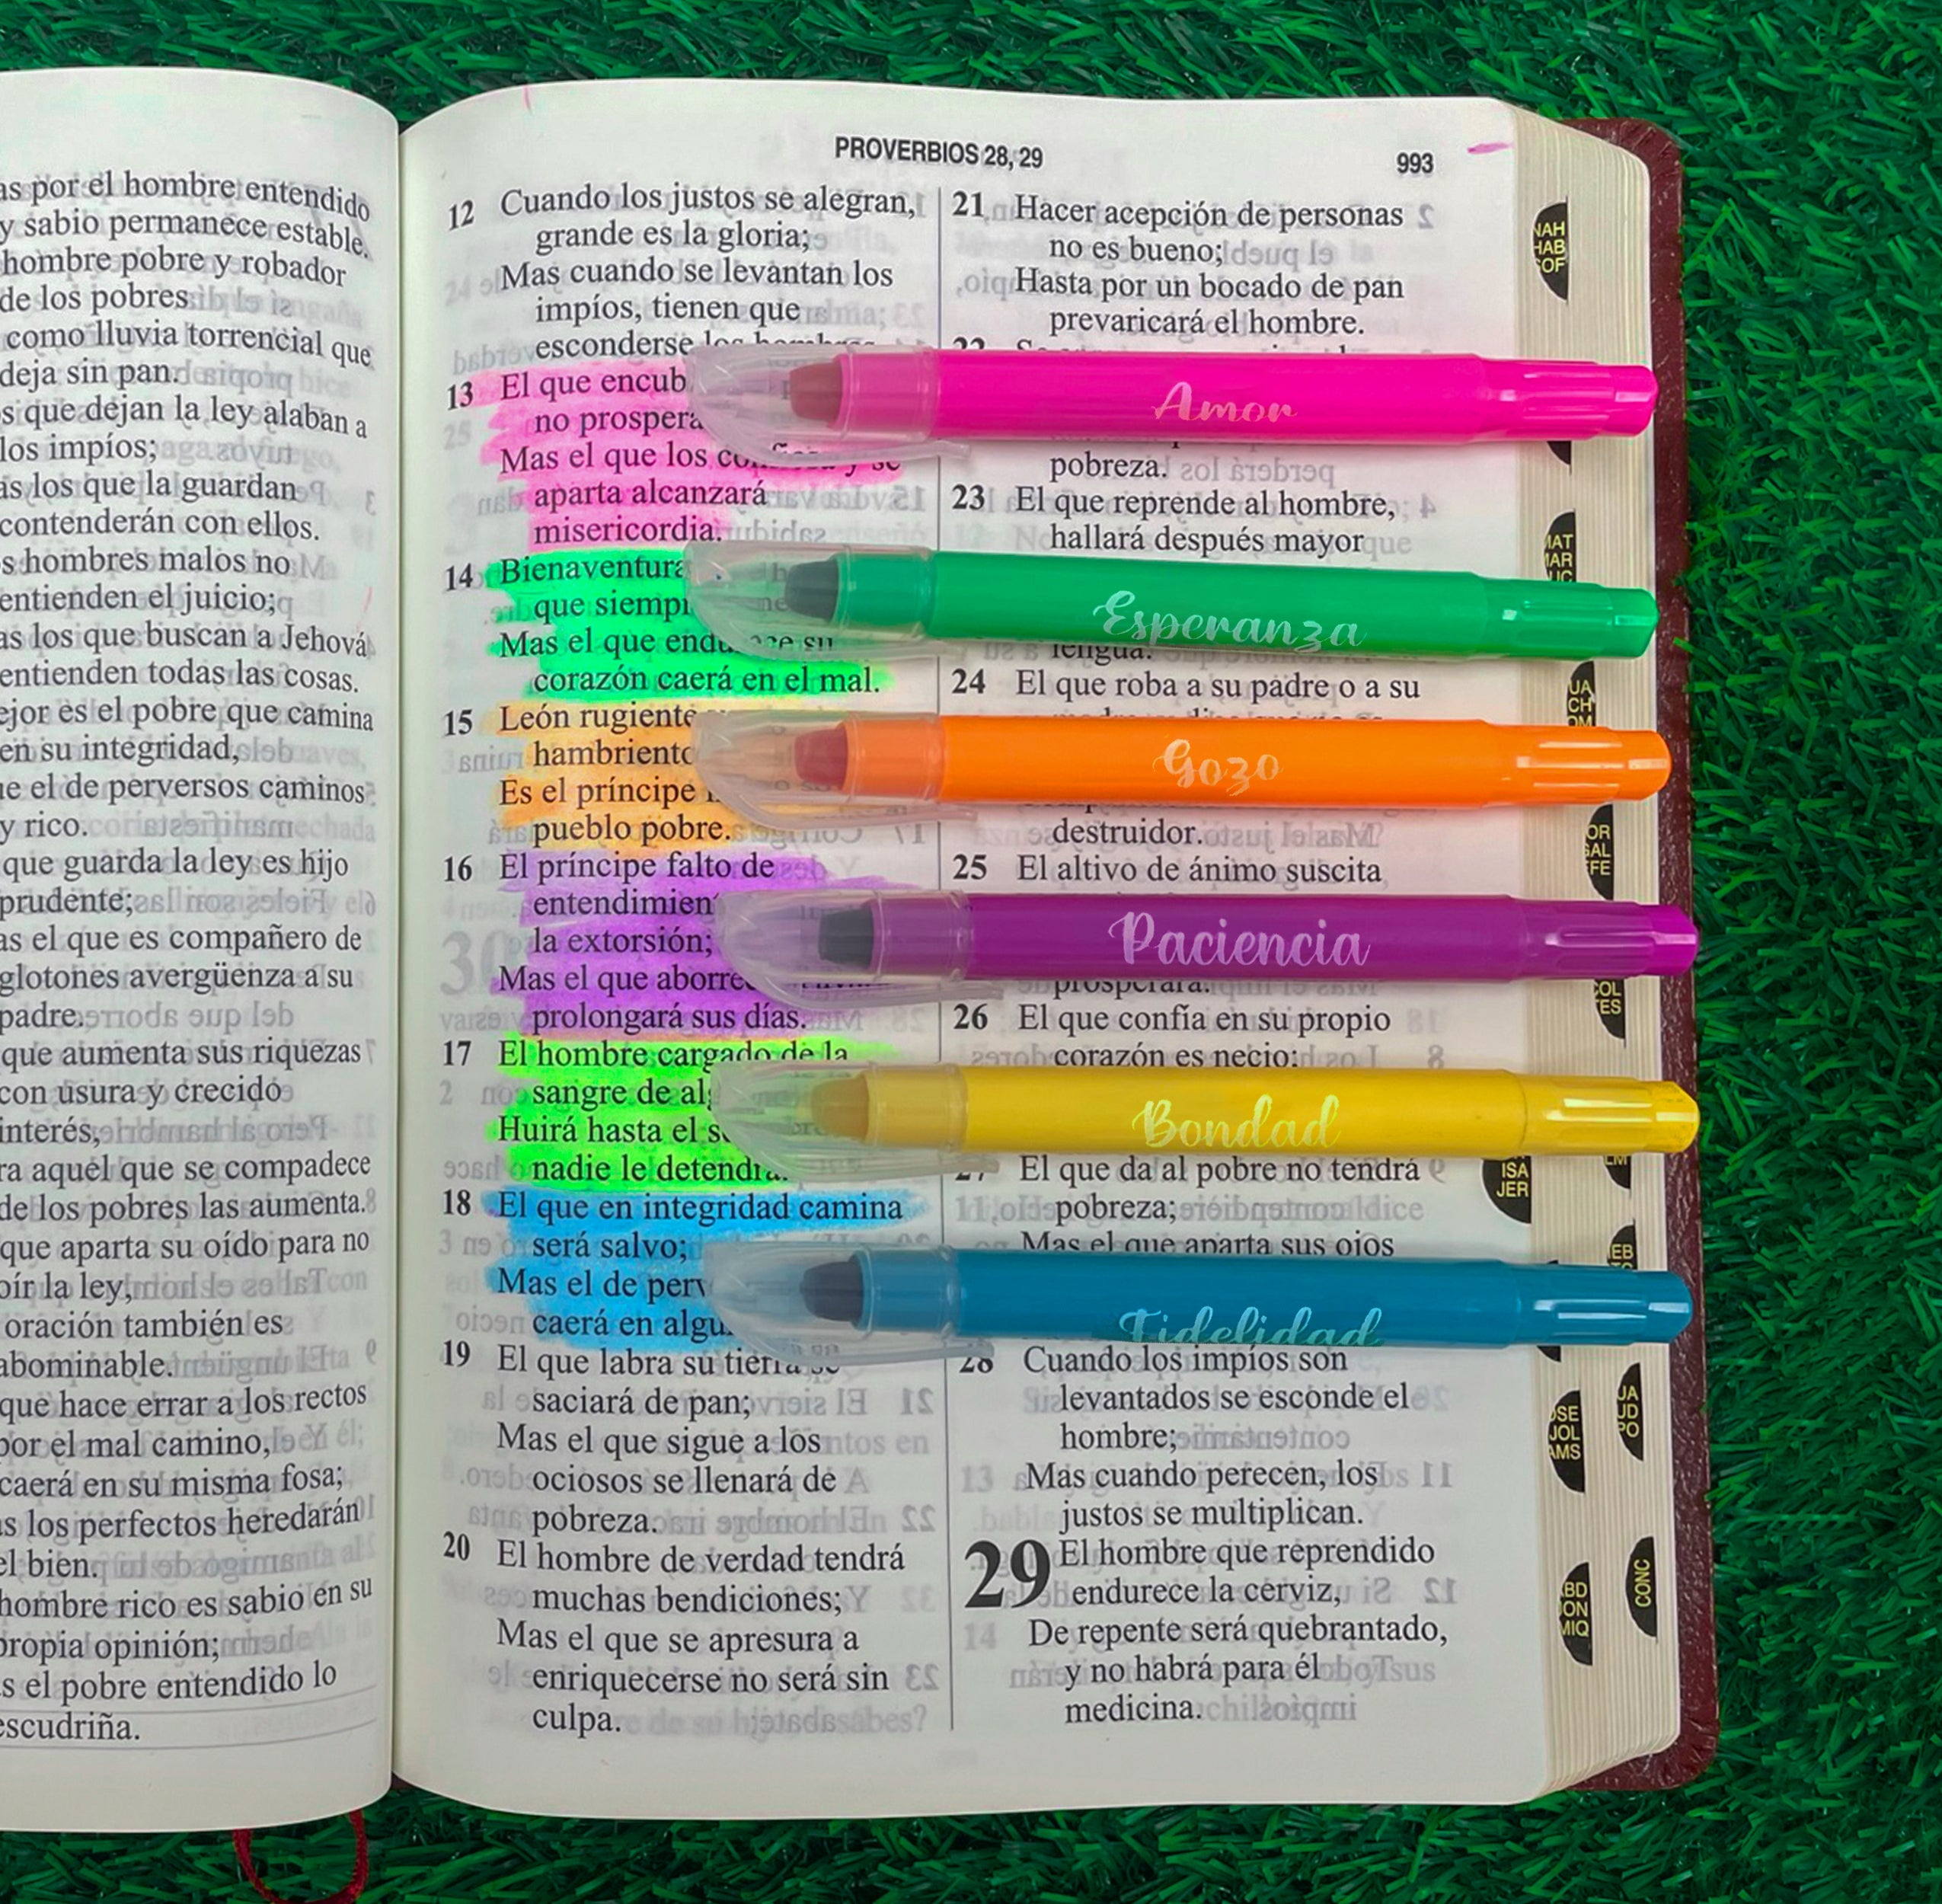 as por el hombre entendido
y sabio permanece estable.
hombre pobre y robador
de los pobres
como lluvia torrencial que
deja sin pan.
s que dejan la ley alaban a
los impíos;
as los que la guardan
contenderán con ellos.
s hombres malos no
entienden el juicio;
as los que buscan a Jehová
entienden todas las cosas.
ejor es el pobre que camina
en su integridad,
ue el de perversos caminos
y rico.
que guarda la ley es hijo
prudente;
as el que es compañero de
glotones avergüenza a su
padre.
que aumenta sus riquezas
con usura y crecido
interés,
ra aquel que se compadece
de los pobres las aumenta.
que aparta su oído para no
oír la ley,
oración también es
abominable.
que hace errar a los rectos
por el mal camino,
caerá en su misma fosa;
s los perfectos heredarán
el bien.
hombre rico es sabio en su
propia opinión;
s el pobre entendido lo
escudriña.
PROVERBIOS 28, 29
993
12 Cuando los justos se alegran,
grande es la gloria;
Mas cuando se levantan los
impíos, tienen que
esconderse los hombres
13 El que encub
no prospera
Mas el que los confiesa y se
aparta alcanzará
misericordia.
14 Bienaventura
que siemp
Mas el que endurece su
corazón caerá en el mal.
15 León rugiente
hambriento
Es el príncipe
pueblo pobre.
16 El príncipe falto de
entendimien
la extorsión;
Mas el que aborre
prolongará sus días.
17 El hombre cargado de la
sangre de alg
Huirá hasta el s
nadie le detendrá.
18 El que en integridad camina
será salvo;
Mas el de perv
caerá en algu
19 El que labra su tierra se
saciará de pan;
Mas el que sigue a los
ociosos se llenará de
pobreza.
20 El hombre de verdad tendrá
muchas bendiciones;
Mas el que se apresura a
enriquecerse no será sin
culpa.
21 Hacer acepción de personas
no es bueno;
Hasta por un bocado de pan
prevaricará el hombre.
22
Amor
pobreza.
23 El que reprende al hombre,
hallará después mayor
Esperanza
lengua.
24 El que roba a su padre o a su
Gozo
destruidor.
25 El altivo de ánimo suscita
Paciencia
prosperará.
26 El que confía en su propio
corazón es necio;
Bondad
27 El que da al pobre no tendrá
pobreza;
Mas el que aparta sus ojos
Fidelidad
28 Cuando los impíos son
levantados se esconde el
hombre;
Mas cuando perecen, los
justos se multiplican.
29 El hombre que reprendido
endurece la cerviz,
De repente será quebrantado,
y no habrá para él
medicina.
NAH
HAB
SOF
MAT
MAR
LUC
JUA
HCH
ROM
COR
GAL
EFE
COL
TES
ISA
JER
HEB
OSE
JOL
AMS
JUA
JUD
APO
ABD
JON
MIQ
CONC